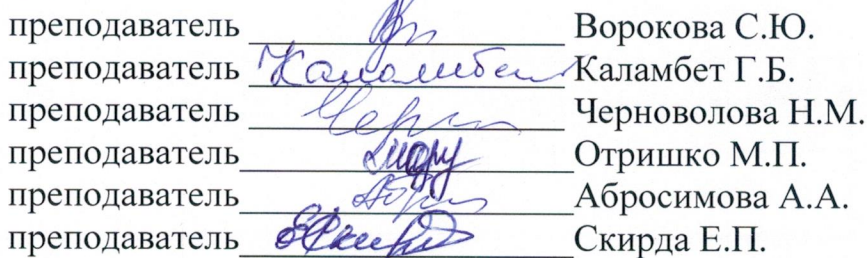 преподаватель Ворокова С.Ю.
преподаватель Каламбет Г.Б.
преподаватель Черноволова Н.М.
преподаватель Отришко М.П.
преподаватель Абросимова А.А.
преподаватель Скирда Е.П.